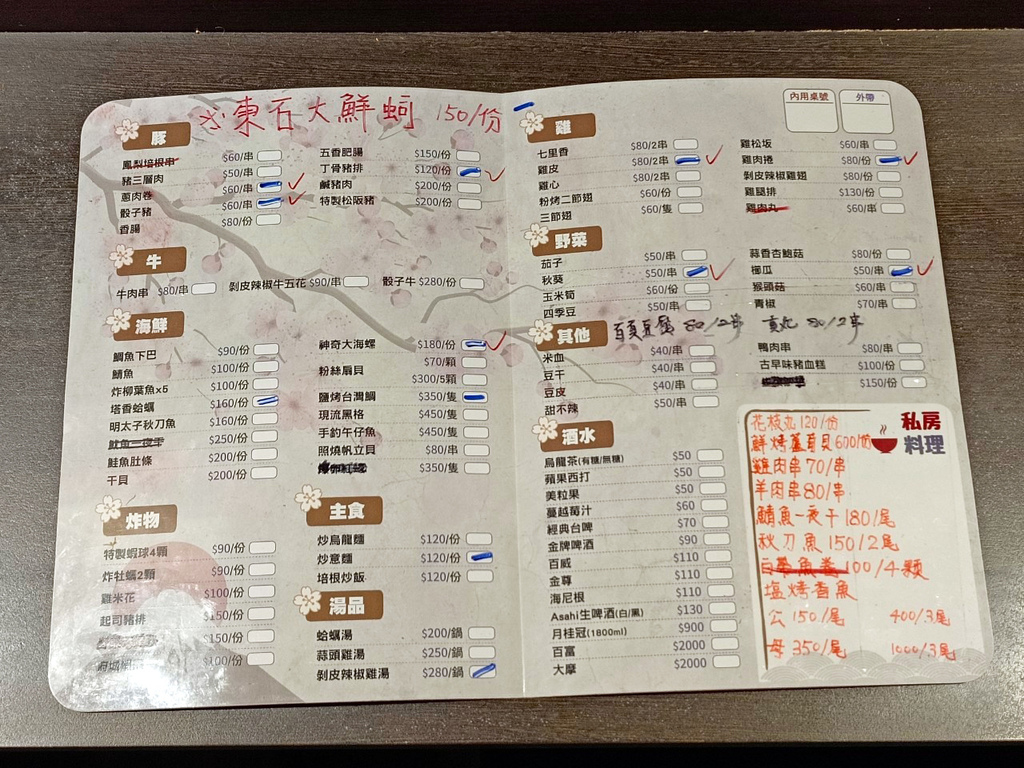 必東石大鮮蚵 150/份
豚
鳳梨培根串 $60/串
豬三層肉 $50/串
蔥肉卷 $60/串
骰子豬 $60/串
香腸 $80/份
五香肥腸 $150/份
丁骨豬排 $120/份
鹹豬肉 $200/份
特製松阪豬 $200/份
牛
牛肉串 $80/串
剝皮辣椒牛五花 $90/串
骰子牛 $280/份
海鮮
鯛魚下巴 $90/份
鯖魚 $100/份
炸柳葉魚x5 $100/份
塔香蛤蠣 $160/份
明太子秋刀魚 $160/份
魷魚一夜干 $250/份
鮭魚肚條 $200/份
干貝 $200/份
神奇大海螺 $180/份
粉絲扇貝 $70/顆
$300/5顆
鹽烤台灣鯛 $350/隻
現流黑格 $450/隻
手釣午仔魚 $450/隻
照燒帆立貝 $80/串
$350/隻
炸物
特製蝦球4顆 $90/份
炸牡蠣2顆 $90/份
雞米花 $100/份
起司豬排 $150/份
$150/份
$100/份
主食
炒烏龍麵 $120/份
炒意麵 $120/份
培根炒飯 $120/份
湯品
蛤蠣湯 $200/鍋
蒜頭雞湯 $250/鍋
剝皮辣椒雞湯 $280/鍋
內用桌號 外帶
雞
七里香 $80/2串
雞皮 $80/2串
雞心 $80/2串
粉烤二節翅 $60/份
三節翅 $60/隻
雞松坂 $60/串
雞肉捲 $80/份
剝皮辣椒雞翅 $80/份
雞腿排 $130/份
雞肉丸 $60/串
野菜
茄子 $50/串
秋葵 $50/串
玉米筍 $60/份
四季豆 $50/串
蒜香杏鮑菇 $80/份
櫛瓜 $50/串
猴頭菇 $60/串
青椒 $70/串
其他
百頁豆腐 80/2串
80/2串
米血 $40/串
豆干 $40/串
豆皮 $40/串
甜不辣 $50/串
鴨肉串 $80/串
古早味豬血糕 $100/份
$150/份
酒水
烏龍茶(有糖/無糖) $50
蘋果西打 $50
美粒果 $50
蔓越莓汁 $60
經典台啤 $70
金牌啤酒 $90
百威 $110
金尊 $110
海尼根 $110
Asahi生啤酒(白/黑) $130
月桂冠(1800ml) $900
百富 $2000
大摩 $2000
私房料理
花枝丸 120/份
鮮烤薑盲貝 600/份
雞肉串 70/串
羊肉串 80/串
鯖魚一夜干 180/尾
秋刀魚 150/2尾
100/4顆
塩烤香魚
公 150/尾 400/3尾
母 350/尾 1000/3尾